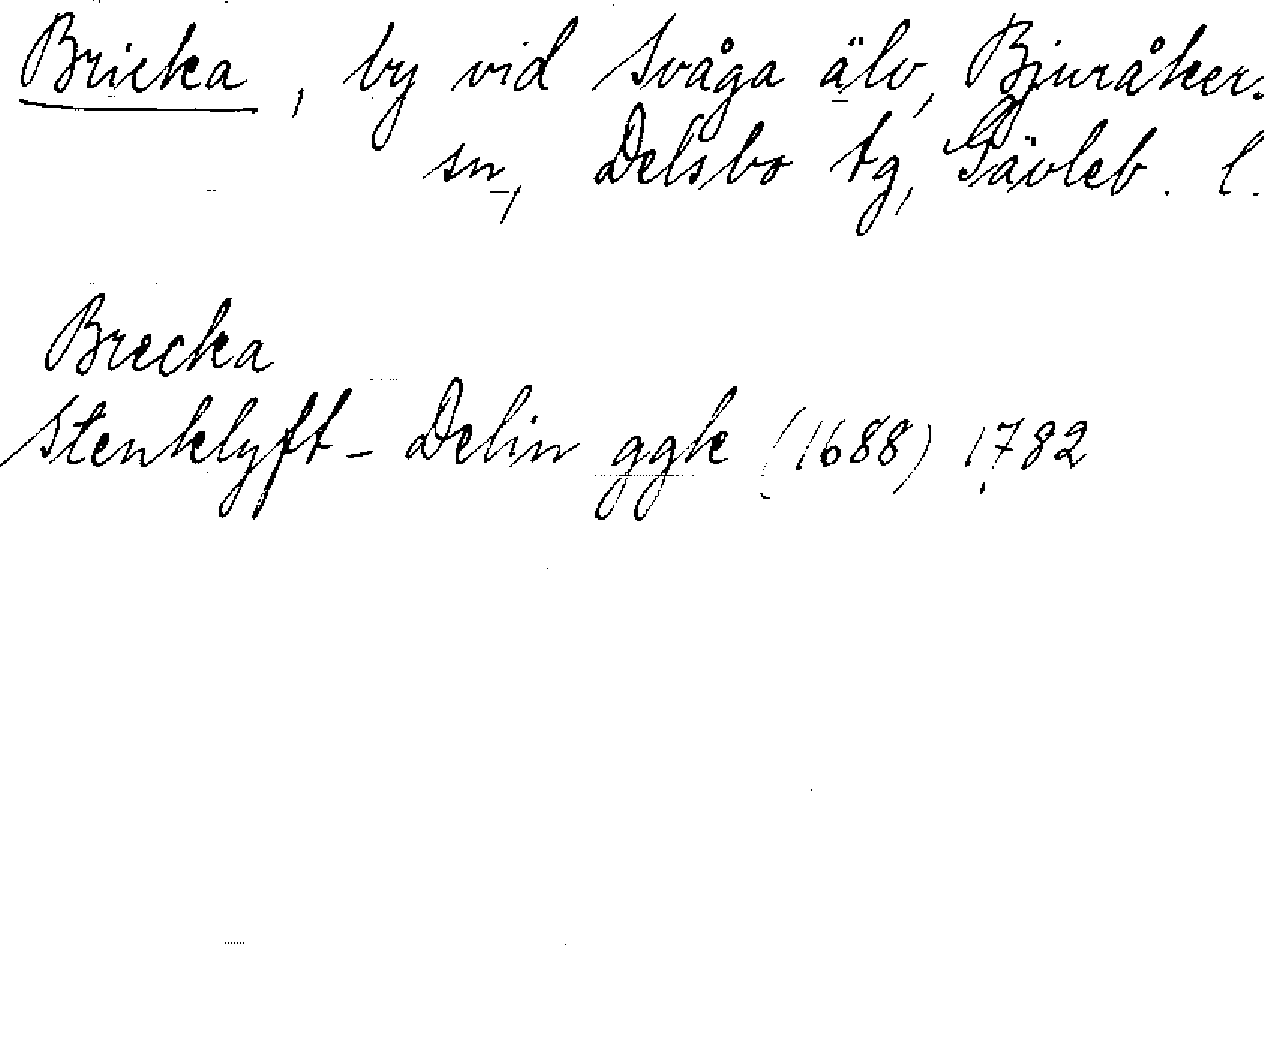 Bricka, by vid Svåga älv, Bjuråkers
sn, Delsbo tg, Gävleb. l.
Brecka
Stenklyft - Delin ggk (1688) 1782